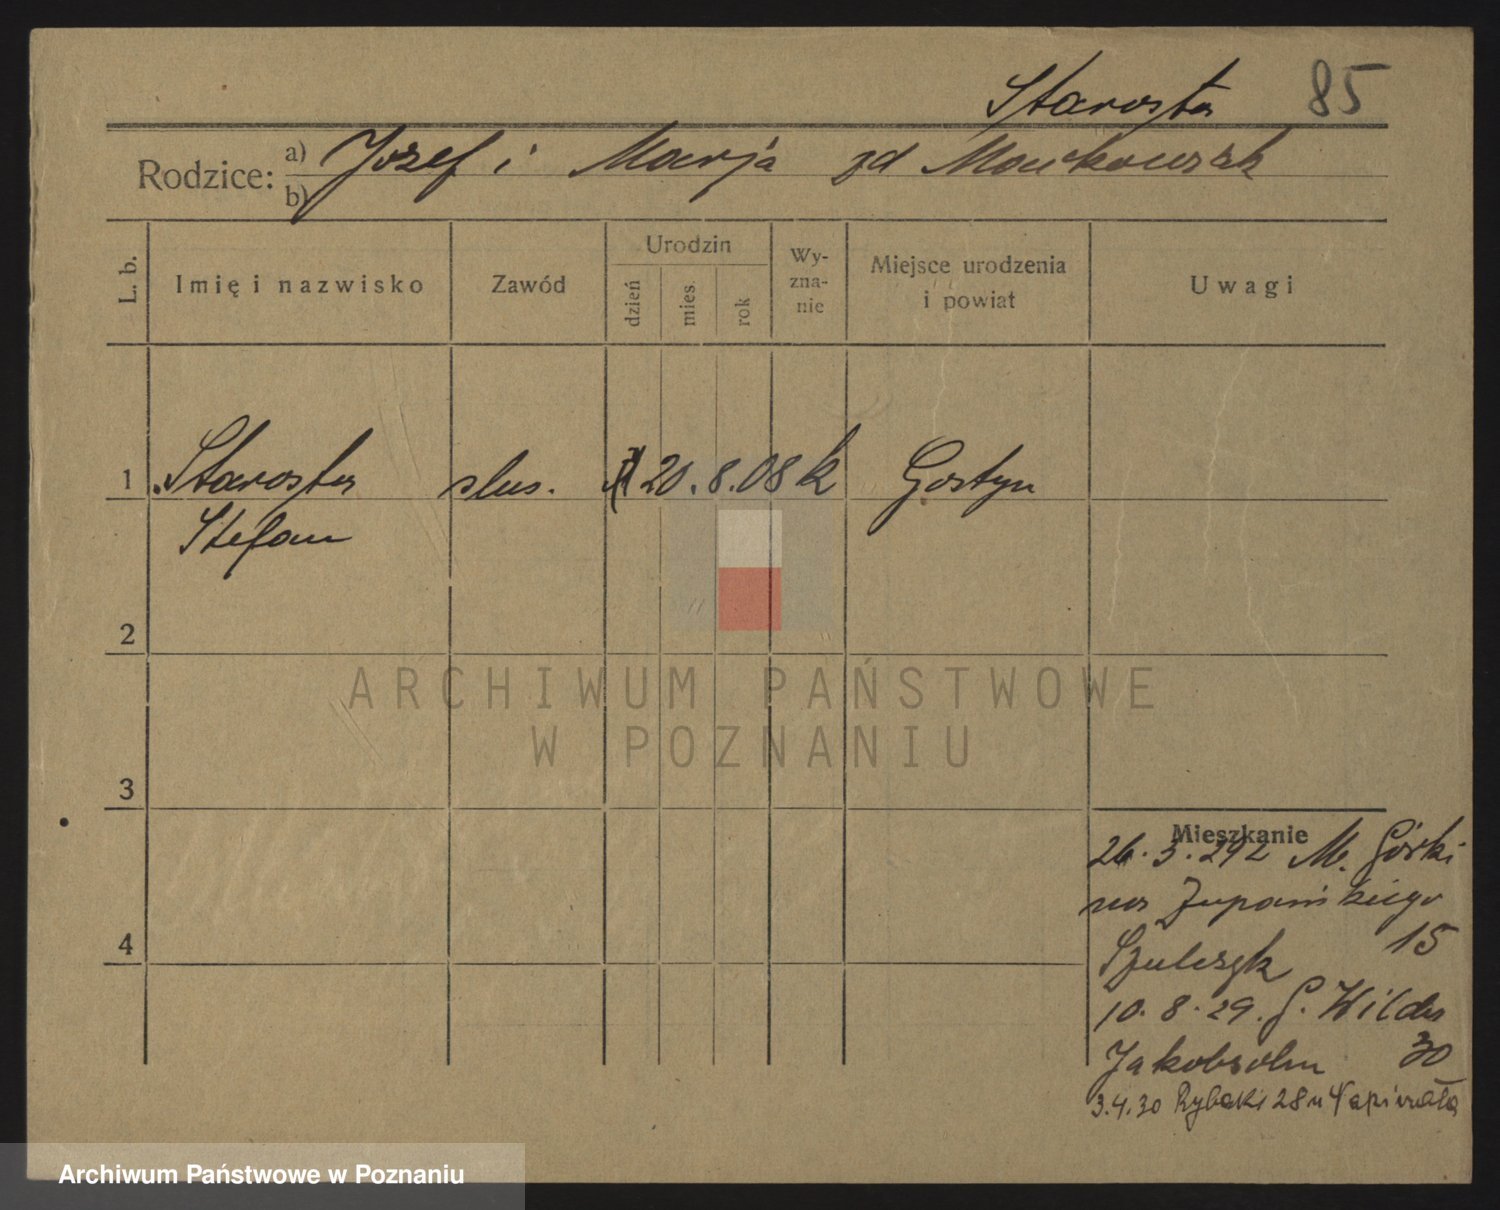 Starosta 85
Rodzice: a) Józef i Marja zd Maćkowiak
b)
L. b.
Imię i nazwisko
Zawód
Urodzin
dzień
mies.
rok
Wy-
zna-
nie
Miejsce urodzenia
i powiat
Uwagi
1 Starosta ślus. 20. 8. 08 k Gostyn
Stefan
2
3
4
Mieszkanie
26. 3. 29 M. Górki
na Żupańskiego
Szulczyk 15
10. 8. 29. G. Wilda
Jakobsohn 30
3.4.30 Rybaki 28 u
ARCHIWUM PAŃSTWOWE
W POZNANIU
Archiwum Państwowe w Poznaniu